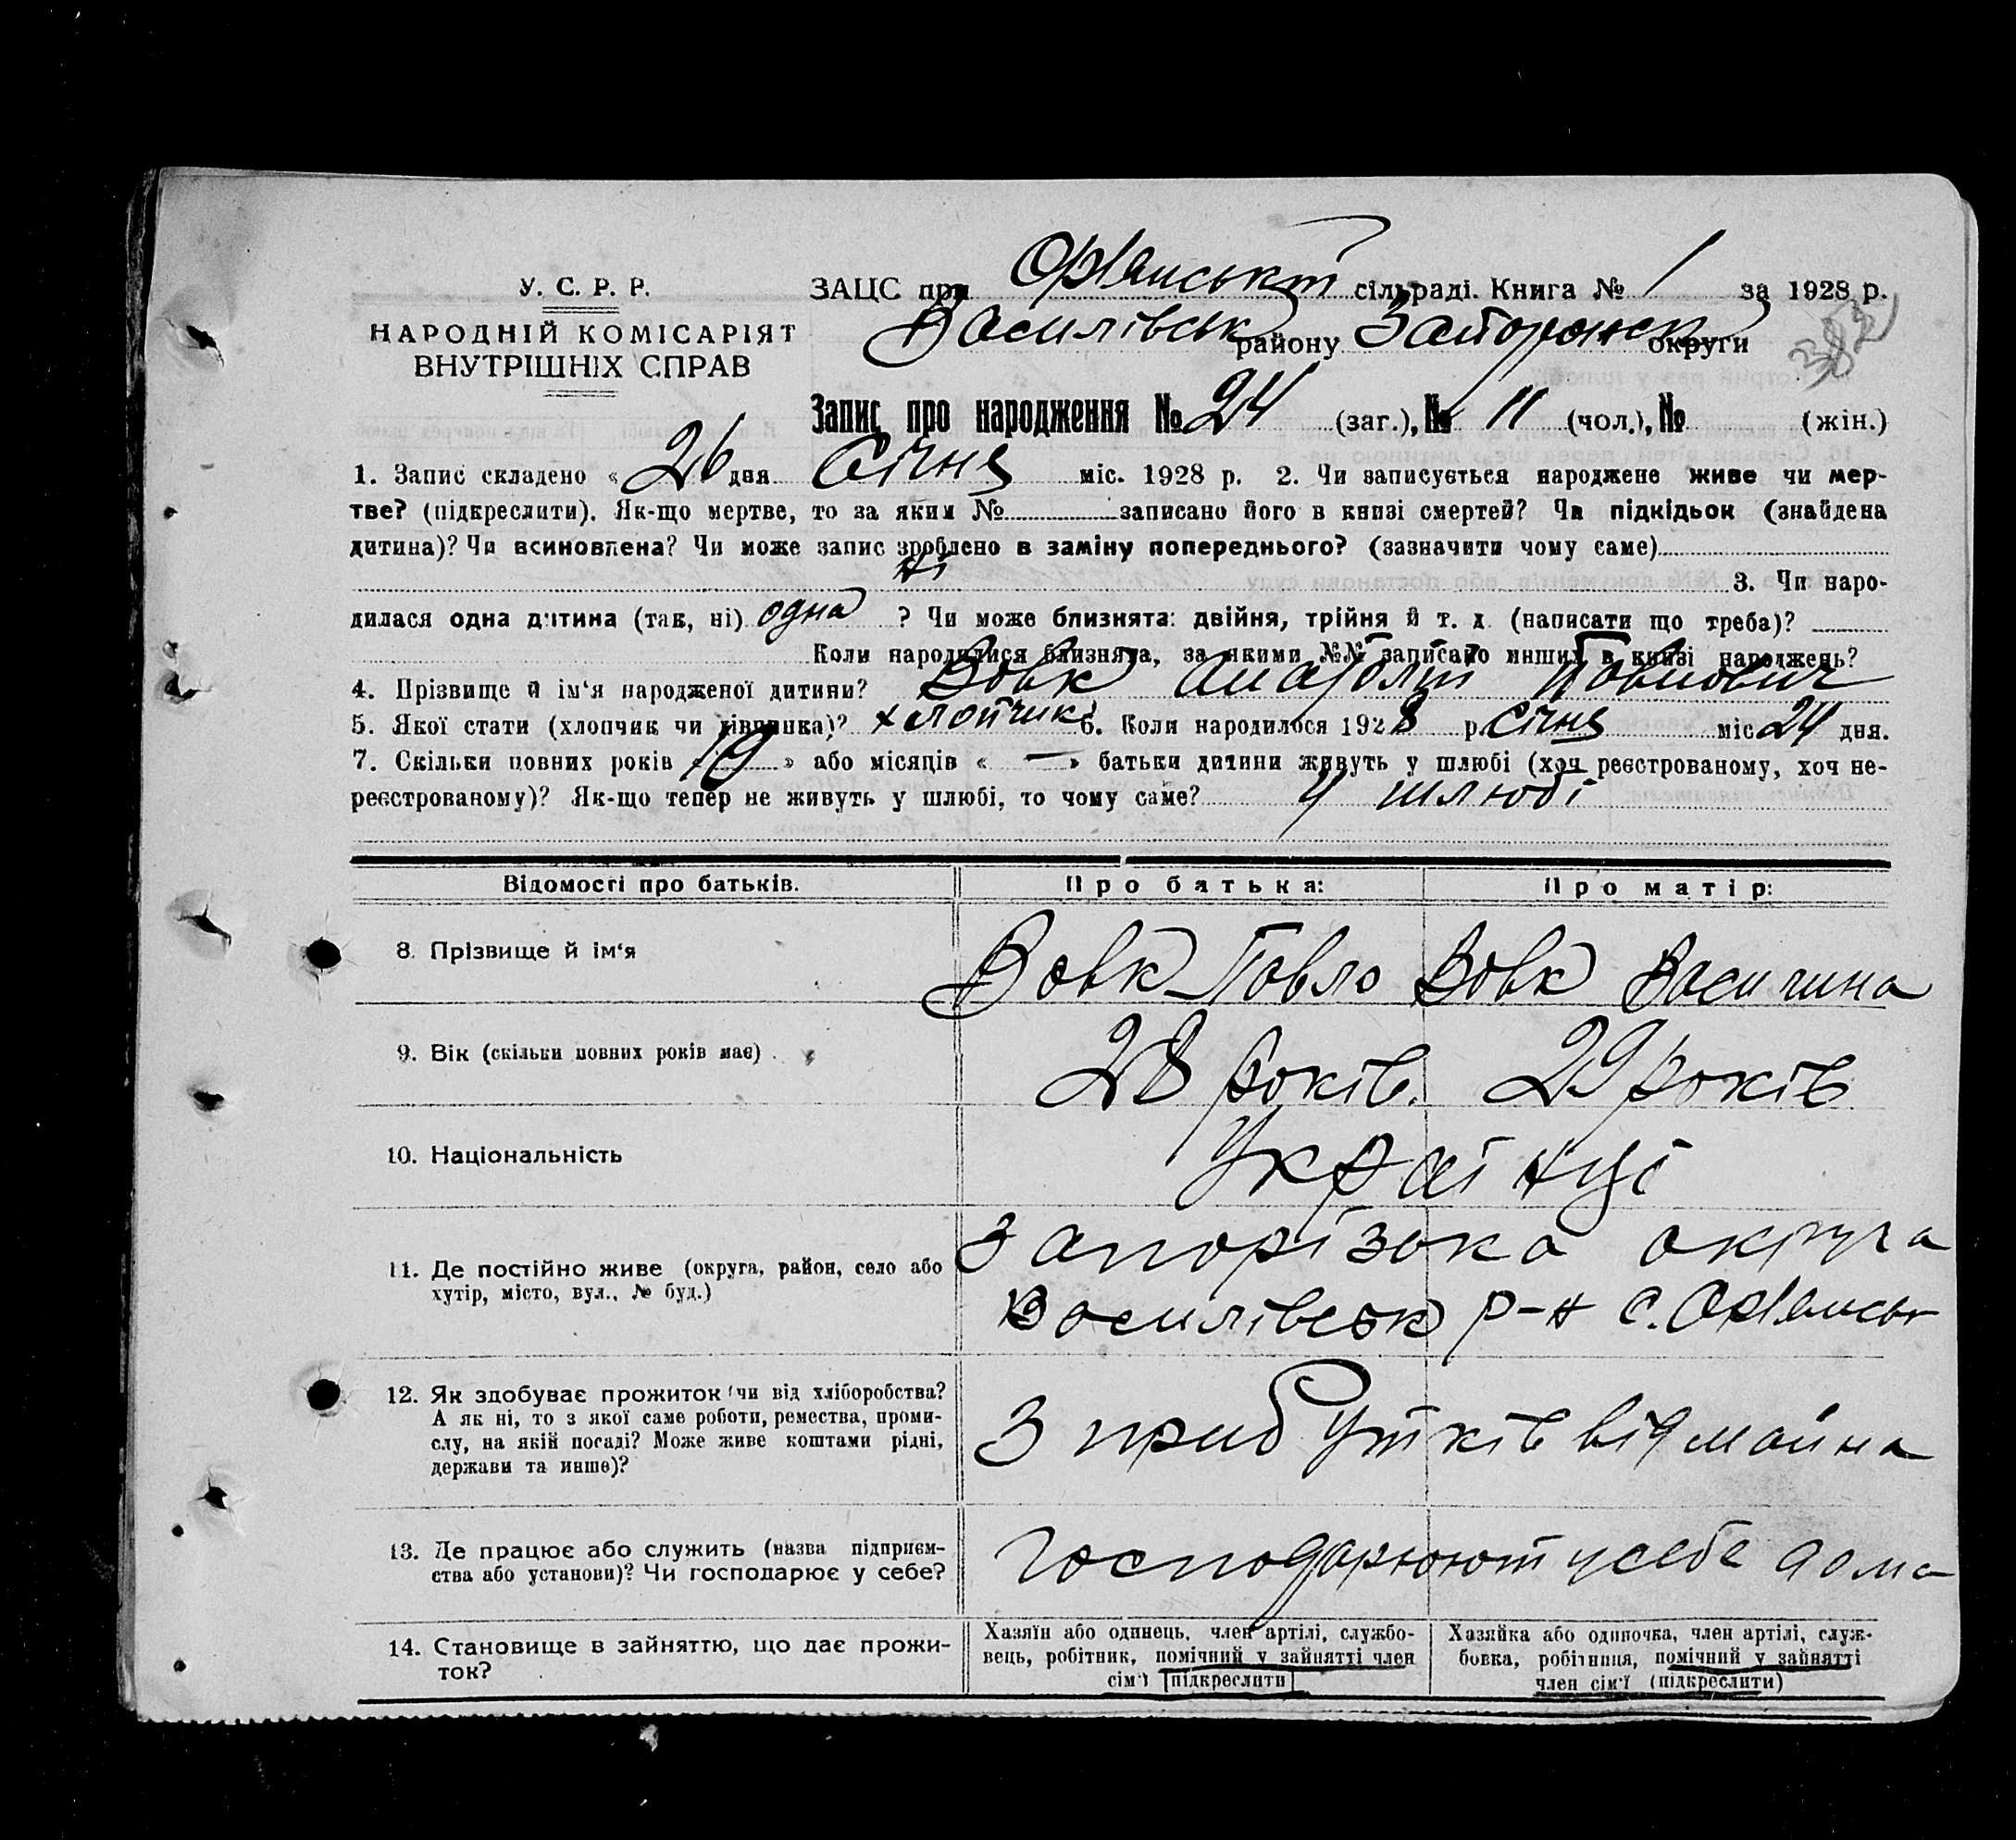 У. С. Р. Р.
НАРОДНІЙ КОМІСАРІЯТ
ВНУТРІШНІХ СПРАВ
ЗАЦС при Орлянській сільраді. Книга № 1 за 1928 р.
Василівськ району Запорожск округи
Запис про народження № 24 (заг.), № 11 (чол.), № (жін.)
1. Запис складено « 26 дня Січня міс. 1928 р. 2. Чи записується народжене живе чи мер-
тве? (підкреслити). Як-що мертве, то за яким № записано його в книзі смертей? Чи підкідьок (знайдена
дитина)? Чи всиновлена? Чи може запис зроблено в заміну попереднього? (зазначити чому саме)
Ні 3. Чи наро-
дилася одна дитина (так, ні) одна ? Чи може близнята: двійня, трійня й т. д. (написати що треба)?
Коли народилися близнята, за якими №№ записано инших в книзі народжень?
4. Прізвище й ім'я народженої дитини? Вовк Анатолій Павлович
5. Якої стати (хлопчик чи дівчинка)? хлопчик 6. Коли народилося 1928 р. Січня міс 24 дня.
7. Скільки повних років « 10 » або місяців « — » батьки дитини живуть у шлюбі (хоч реєстрованому, хоч не-
реєстрованому)? Як-що тепер не живуть у шлюбі, то чому саме? У шлюбі
Відомості про батьків. Про батька: Про матір:
8. Прізвище й ім'я Вовк Павло Вовк Василина
9. Вік (скільки повних років має) 28 років. 29 років
10. Національність Українці
11. Де постійно живе (округа, район, село або
хутір, місто, вул., № буд.)
Запорізька округа
Василівськ р-н с. Орлянськ
12. Як здобуває прожиток (чи від хліборобства?
А як ні, то з якої саме роботи, ремества, проми-
слу, на якій посаді? Може живе коштами рідні,
держави та инше)?
З прибутків від майна
13. Де працює або служить (назва підприєм-
ства або установи)? Чи господарює у себе?
Господарюют у себе дома
14. Становище в зайняттю, що дає прожи-
ток?
Хазяїн або одинець, член артілі, службо-
вець, робітник, помічний у зайнятті член
сім'ї (підкреслити)
Хазяйка або одиночка, член артілі, служ-
бовка, робітниця, помічний у зайнятті
член сім'ї (підкреслити)